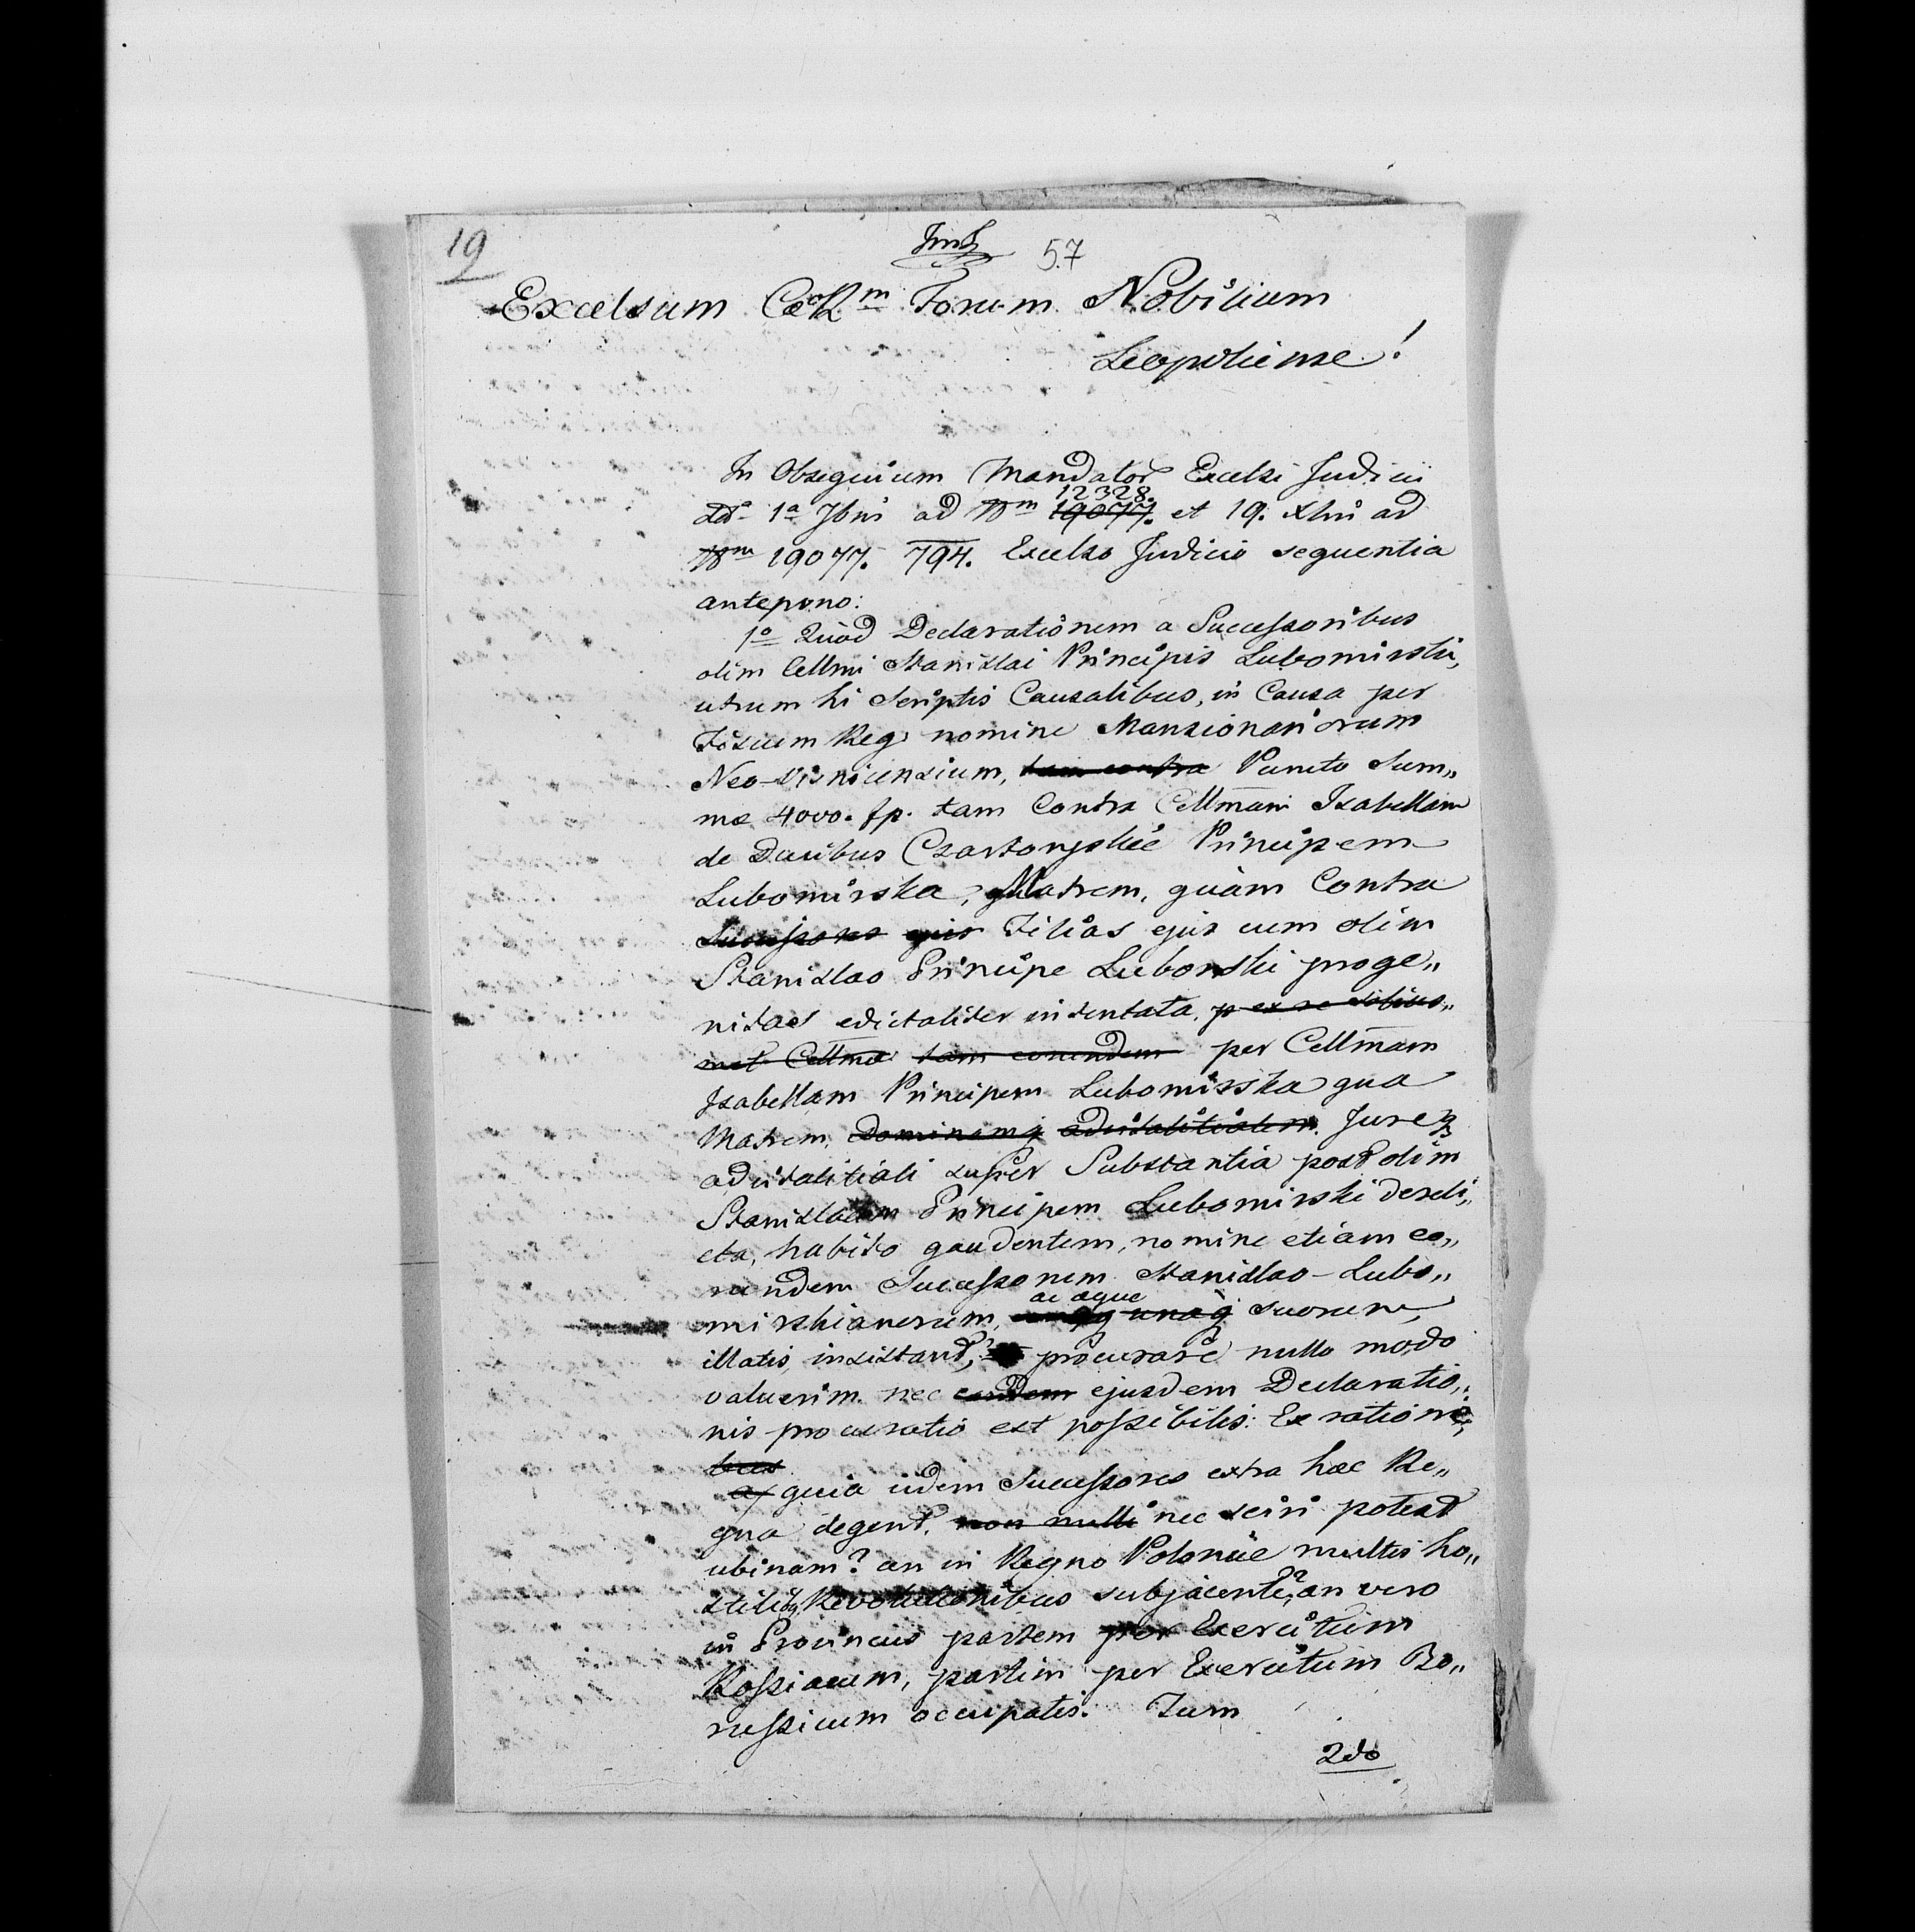 19
57
Excelsum CæsR.m Forum Nobilium
Leopoliense!
In Obsequium Mandator Excelsi Judicii
dd° 1a 7bris ad Nm 19077. 12328. et 19. Xbris ad
Nm 19077. 794. Excelso Judicio sequentia
antepono:
1o Quòd Declarationem a Successoribus
olim Cellmi Stanislai Principis Lubomirski,
utrum hi Scriptis Causalibus, in Causa per
Fiscum Reg nomine Mansionariorum
Neo-Visnicensium, tam contra Puncto Sum„
mæ 4000. fp. tam Contra Cellmam Isabellam
de Ducibus Czartoryskie Principem
Lubomirska, Matrem, quàm Contra
Successores ejus Filias ejus cum olim
Stanislao Principe Lubomski proge„
nitas edictaliter intentata,
met Cellma tam eorundem per Cellmam
Isabellam Principem Lubomirska qua
Matrem, Dominamq advitalitialem. Jureq
advitalitiali super Substantia post olim
Stanislaum Principem Lubomirski dereli„
cta, habito gaudentem, nomine etiam eo„
rundem Successorum Stanislao-Lubo„
mirskianorum, ac æque unaq suorum,
illatis, insistant, procurare nullo modo
valuerim nec eadem ejusdem Declaratio„
nis procuratio est possibilis: Ex ratione,
bus
a/ quia iidem Successores extra hæc Re„
gna degent, non nulli nec sciri potest
ubinam? an in Regno Poloniæ multis ho„
stilibq Revolutionibus subjacente, an vero
in Provinciis partem per Exercitum
Rossiacum, partim per Exercitum Bo„
russicum occupatis. Tum
2do